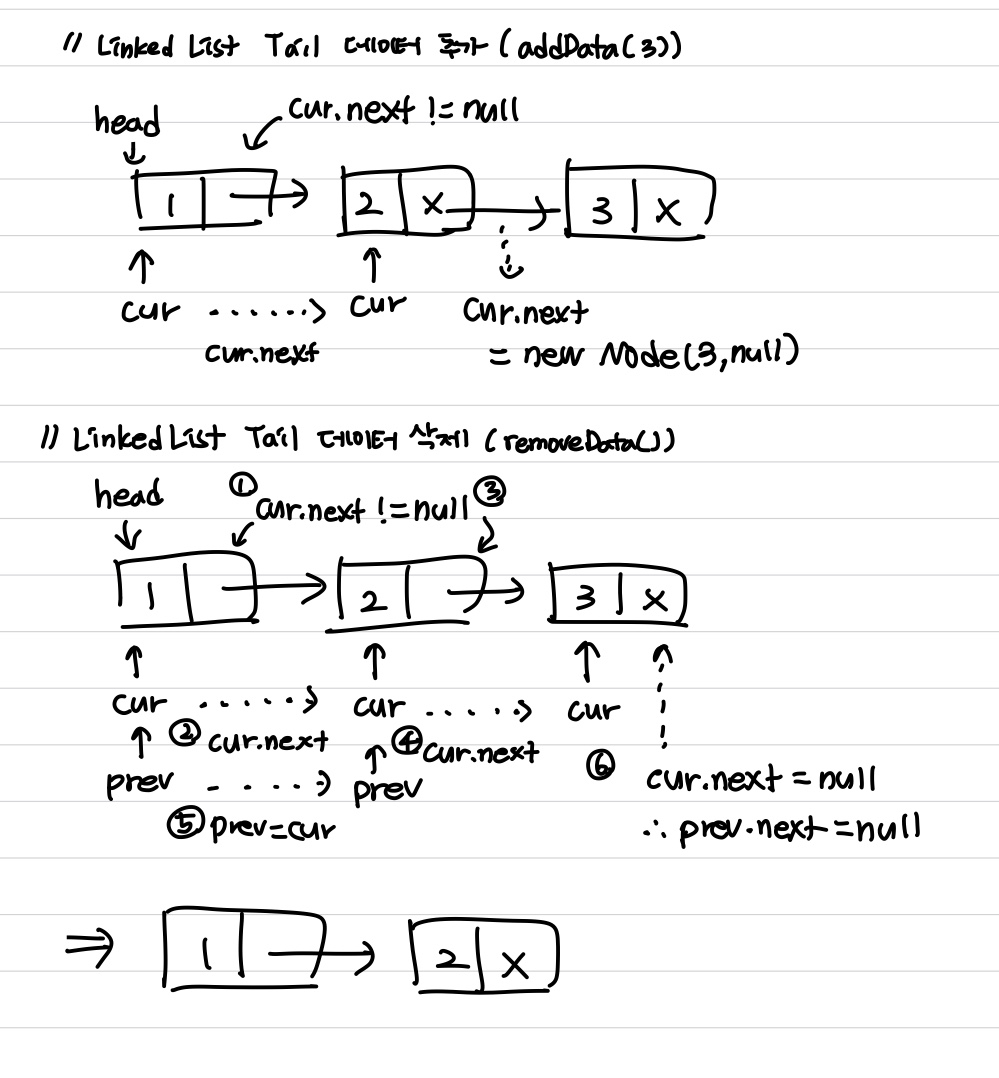 // Linked List Tail 데이터 추가 (addData(3))
head
cur.next != null
1
2 X
3 X
cur
cur
cur.next
cur.next
= new Node(3,null)
// Linked List Tail 데이터 삭제 (removeData())
head
① cur.next != null ③
1
2
3 X
cur
cur
cur
② cur.next
④ cur.next
prev
prev
⑤ prev=cur
⑥ cur.next = null
∴ prev.next = null
⇒ 1
2 X